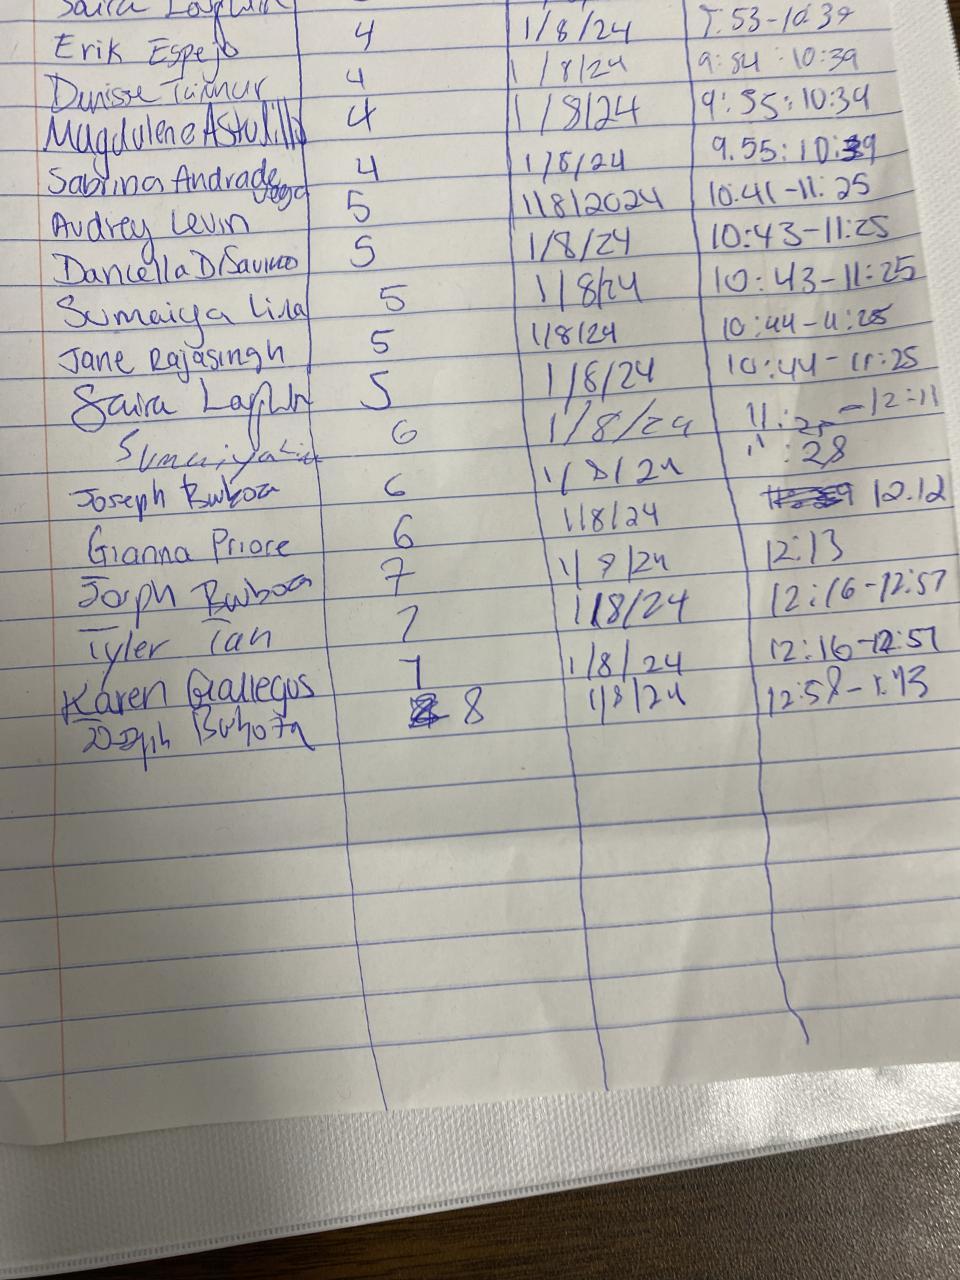 Saira
Erik Espejo 4 1/8/24 9:53-10:39
Denisse 4 1/8/24 9:54:10:39
4 1/8/24 9:55:10:39
Sabrina Andrade Vega 4 1/8/24 9.55:10:39
Audrey Levin 5 1/8/2024 10:41-11:25
5 1/8/24 10:43-11:25
Sumaiya 5 1/8/24 10:43-11:25
Jane Rajasingh 5 1/8/24 10:44-11:25
Saira 5 1/8/24 10:44-11:25
Sumaiya 6 1/8/24 -12:11
Joseph 6 1/8/24 11:28
Gianna Priore 6 1/8/24 12.12
Joseph 7 1/8/24 12:13
Tyler Tan 7 1/8/24 12:16-12:57
Karen Gallegos 7 1/8/24 12:16-12:57
Joseph 8 1/8/24 12:58-1:43